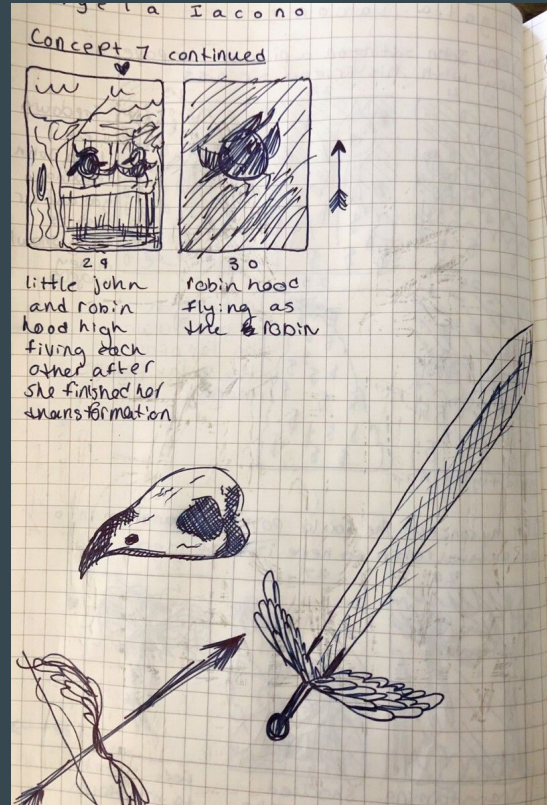 Iacono
Concept 7 continued
29
little john
and robin
hood high
fiving each
other after
she finished her
transformation
30
robin hood
flying as
the robin